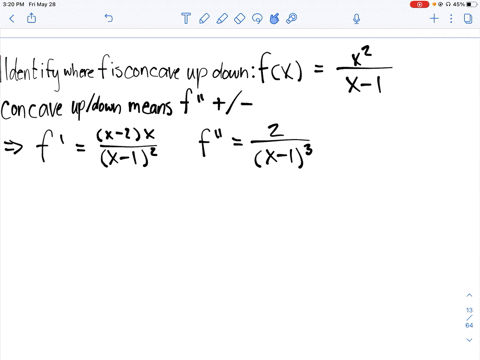 3:20 PM Fri May 28
45%
Identify where f is concave up down: f(x) = x²/(x-1)
concave up/down means f" +/-
⇒ f' = (x-2)x/(x-1)² f" = 2/(x-1)³
13
/
64